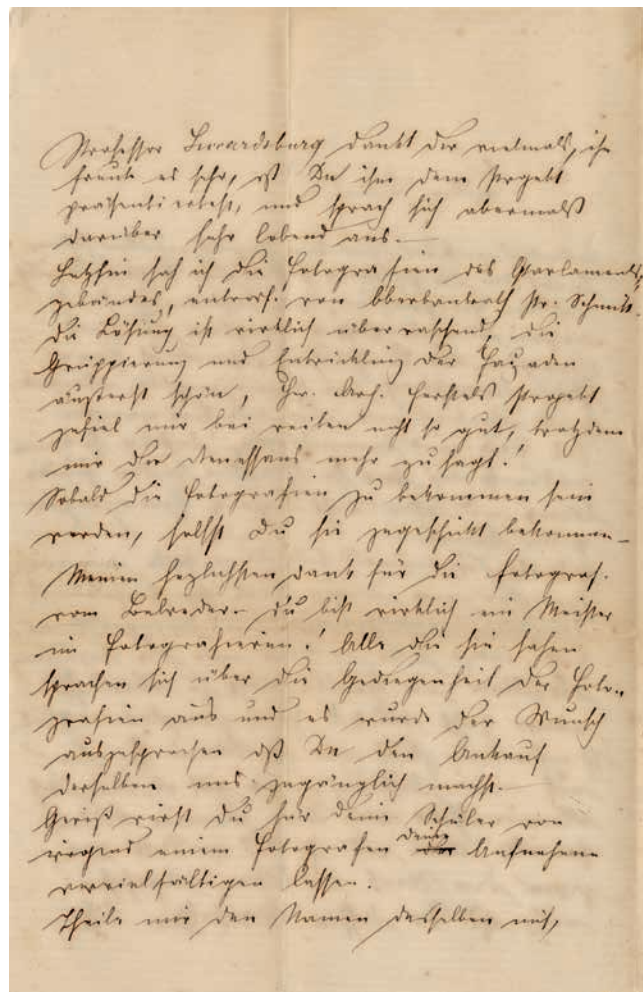 Professor Luccardsburg dankt Dir vielmals, ihn
freute es sehr, daß Du ihm dem Projekt
präsentirtest, und sprach sich abermalß
darüber sehr lobend aus. —
Letzhin sah ich die Fotografien des Parlaments,
gebäudes, entworf. von Oberbaurath Fr. Schmidt.
Die Lösung ist wirklich überraschend, die
Gruppierung und Entwicklung der Façaden
äußerst schön, Hr. Arch. Ferstels Projekt
gefiel mir bei weiten nicht so gut, trotzdem
mir die Renessans mehr zu sagt!
Sobald die Fotografien zu bekommen sein
werden, sollst Du sie zugeschickt bekommen —
Meinen herzlichsten Dank für die Fotograf.
vom Belveder. Du bist wirklich ein Meister
im Fotografieren! Alle die sie sahen
sprachen sich über die Gediegenheit der Foto-
grafien aus und es wurde der Wunsch
ausgesprochen daß Du den Ankauf
derselben uns zugänglich machst. —
Gewiß wirst Du für deine Schüler von
irgend einem Fotografen deine Aufnahmen
vervielfältigen lassen.
Theile mir den Namen desselben mit,